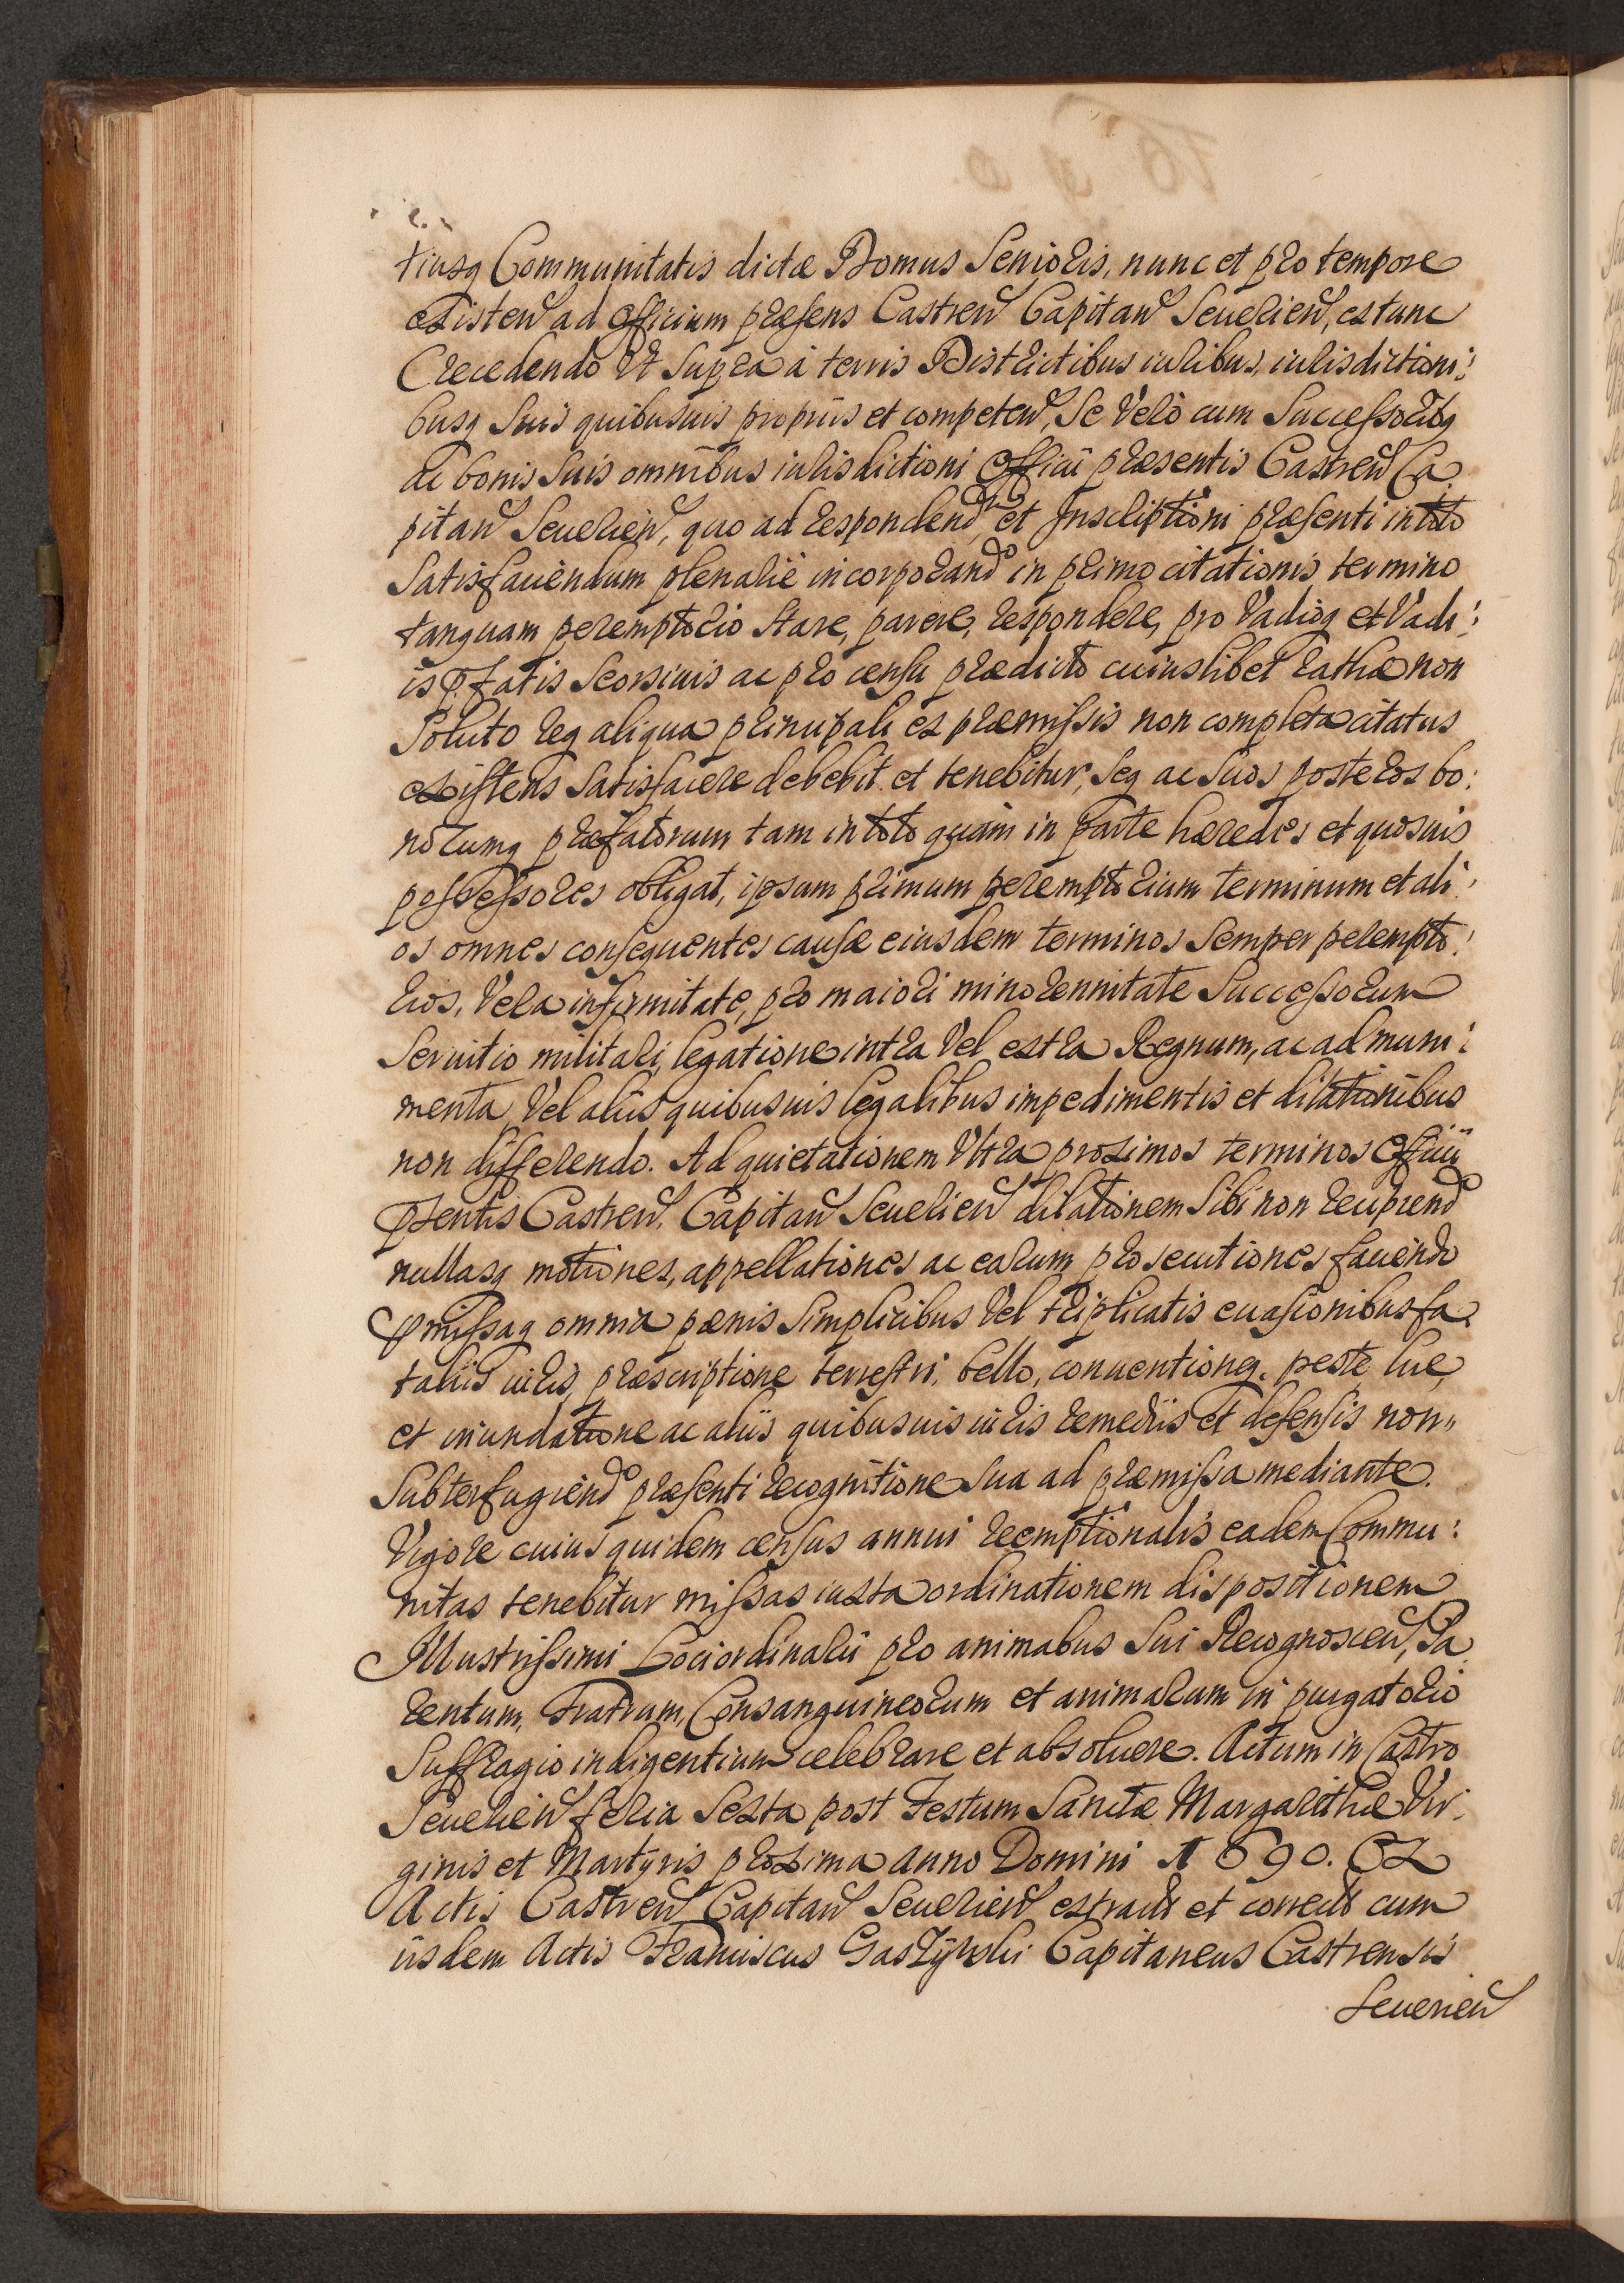 tiusq Communitatis dictæ Domus Senioris, nunc et pro tempore
existen ad Officium præsens Castren Capitan Seuerien, ex tunc
recedendo Vt supra à terris Districtibus iuribus, iurisdictioni:
busq Suis quibusuis proprijs et competen, Se Verò cum Successoribq
ac bonis Suis omnibus iurisdictioni Officij præsentis Castren Ca:
pitan Seuerien, quo ad respondend et Inscriptioni præsenti in toto
Satisfaciendum plenariè incorporando in primo citationis termino
tanquam peremptorio Stare, parere, respondere, pro Vadioq et Vadi:
is pfatis Seorsiuis ac pro censu prædicto cuiuslibet rathæ non
Soluto req aliqua principali ex præmissis non completa citatus
existens Satisfacere debebit et tenebitur, Seq ac Suos posteros bo:
norumq præfatorum tam in toto quàm in parte hæredes et quosuis
possessores obligat, ipsum primum peremptorium terminum et ali:
os omnes consequentes causæ eiusdem terminos Semper perempto:
rios, Vera infirmitate, pro maiori minorennitate Successorum
Seruitio militari, legatione intra Vel extra Regnum, ac ad muni:
menta, Vel alijs quibusuis legalibus impedimentis et dilationibus
non differendo. Ad quietationem Vltra proximos terminos Officij
psentis Castren, Capitan Seuerien dilationem Sibi non recipiendo
nullasq motiones, appellationes ac earum prosecutiones faciendo
pmissaq omnia pænis Simplicibus Vel triplicatis euasionibus fa:
talijs iuris, præscriptione terrestri, bello, conuentioneq. peste lue,
et inundatione ac alijs quibusuis iuris remedijs et defensis non
Subterfugiendo præsenti recognitione Sua ad præmissa mediante.
Vigore cuius quidem census annui reemptionalis eadem Commu:
nitas tenebitur missas iuxta ordinationem dispositionem
Illustrissimi Lociordinarij pro animabus Sui Recognoscen, Pa
rentum, Fratrum, Consanguineorum et animarum in purgatorio
Suffragio indigentium celebrare et absoluere. Actum in Castro
Seuerien feria Sexta post Festum Sanctæ Margarethæ Vir:
ginis et Martyris proxima Anno Domini 1690. Ex
Actis Castren Capitan Seuerien extradt et correct cum
ijsdem Actis Franciscus Capitaneus Castrensis
Seuerien